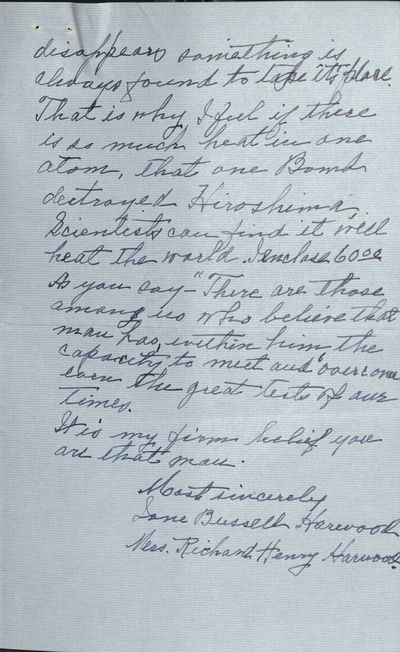 disappears something is
always found to take "its" place.
That is why, I feel if there
is so much heat in one
atom, that one Bomb
destroyed Hiroshima,
Scientists can find it will
heat the world. I enclose 60.00
As you say - "There are those
among us who believe that
man has, within him the
capacity, to meet and overcome
even the great tests of our
times.
It is my firm belief you
are that man.
Most sincerely
Jane Bussell Harwood
Mrs. Richard Henry Harwood.